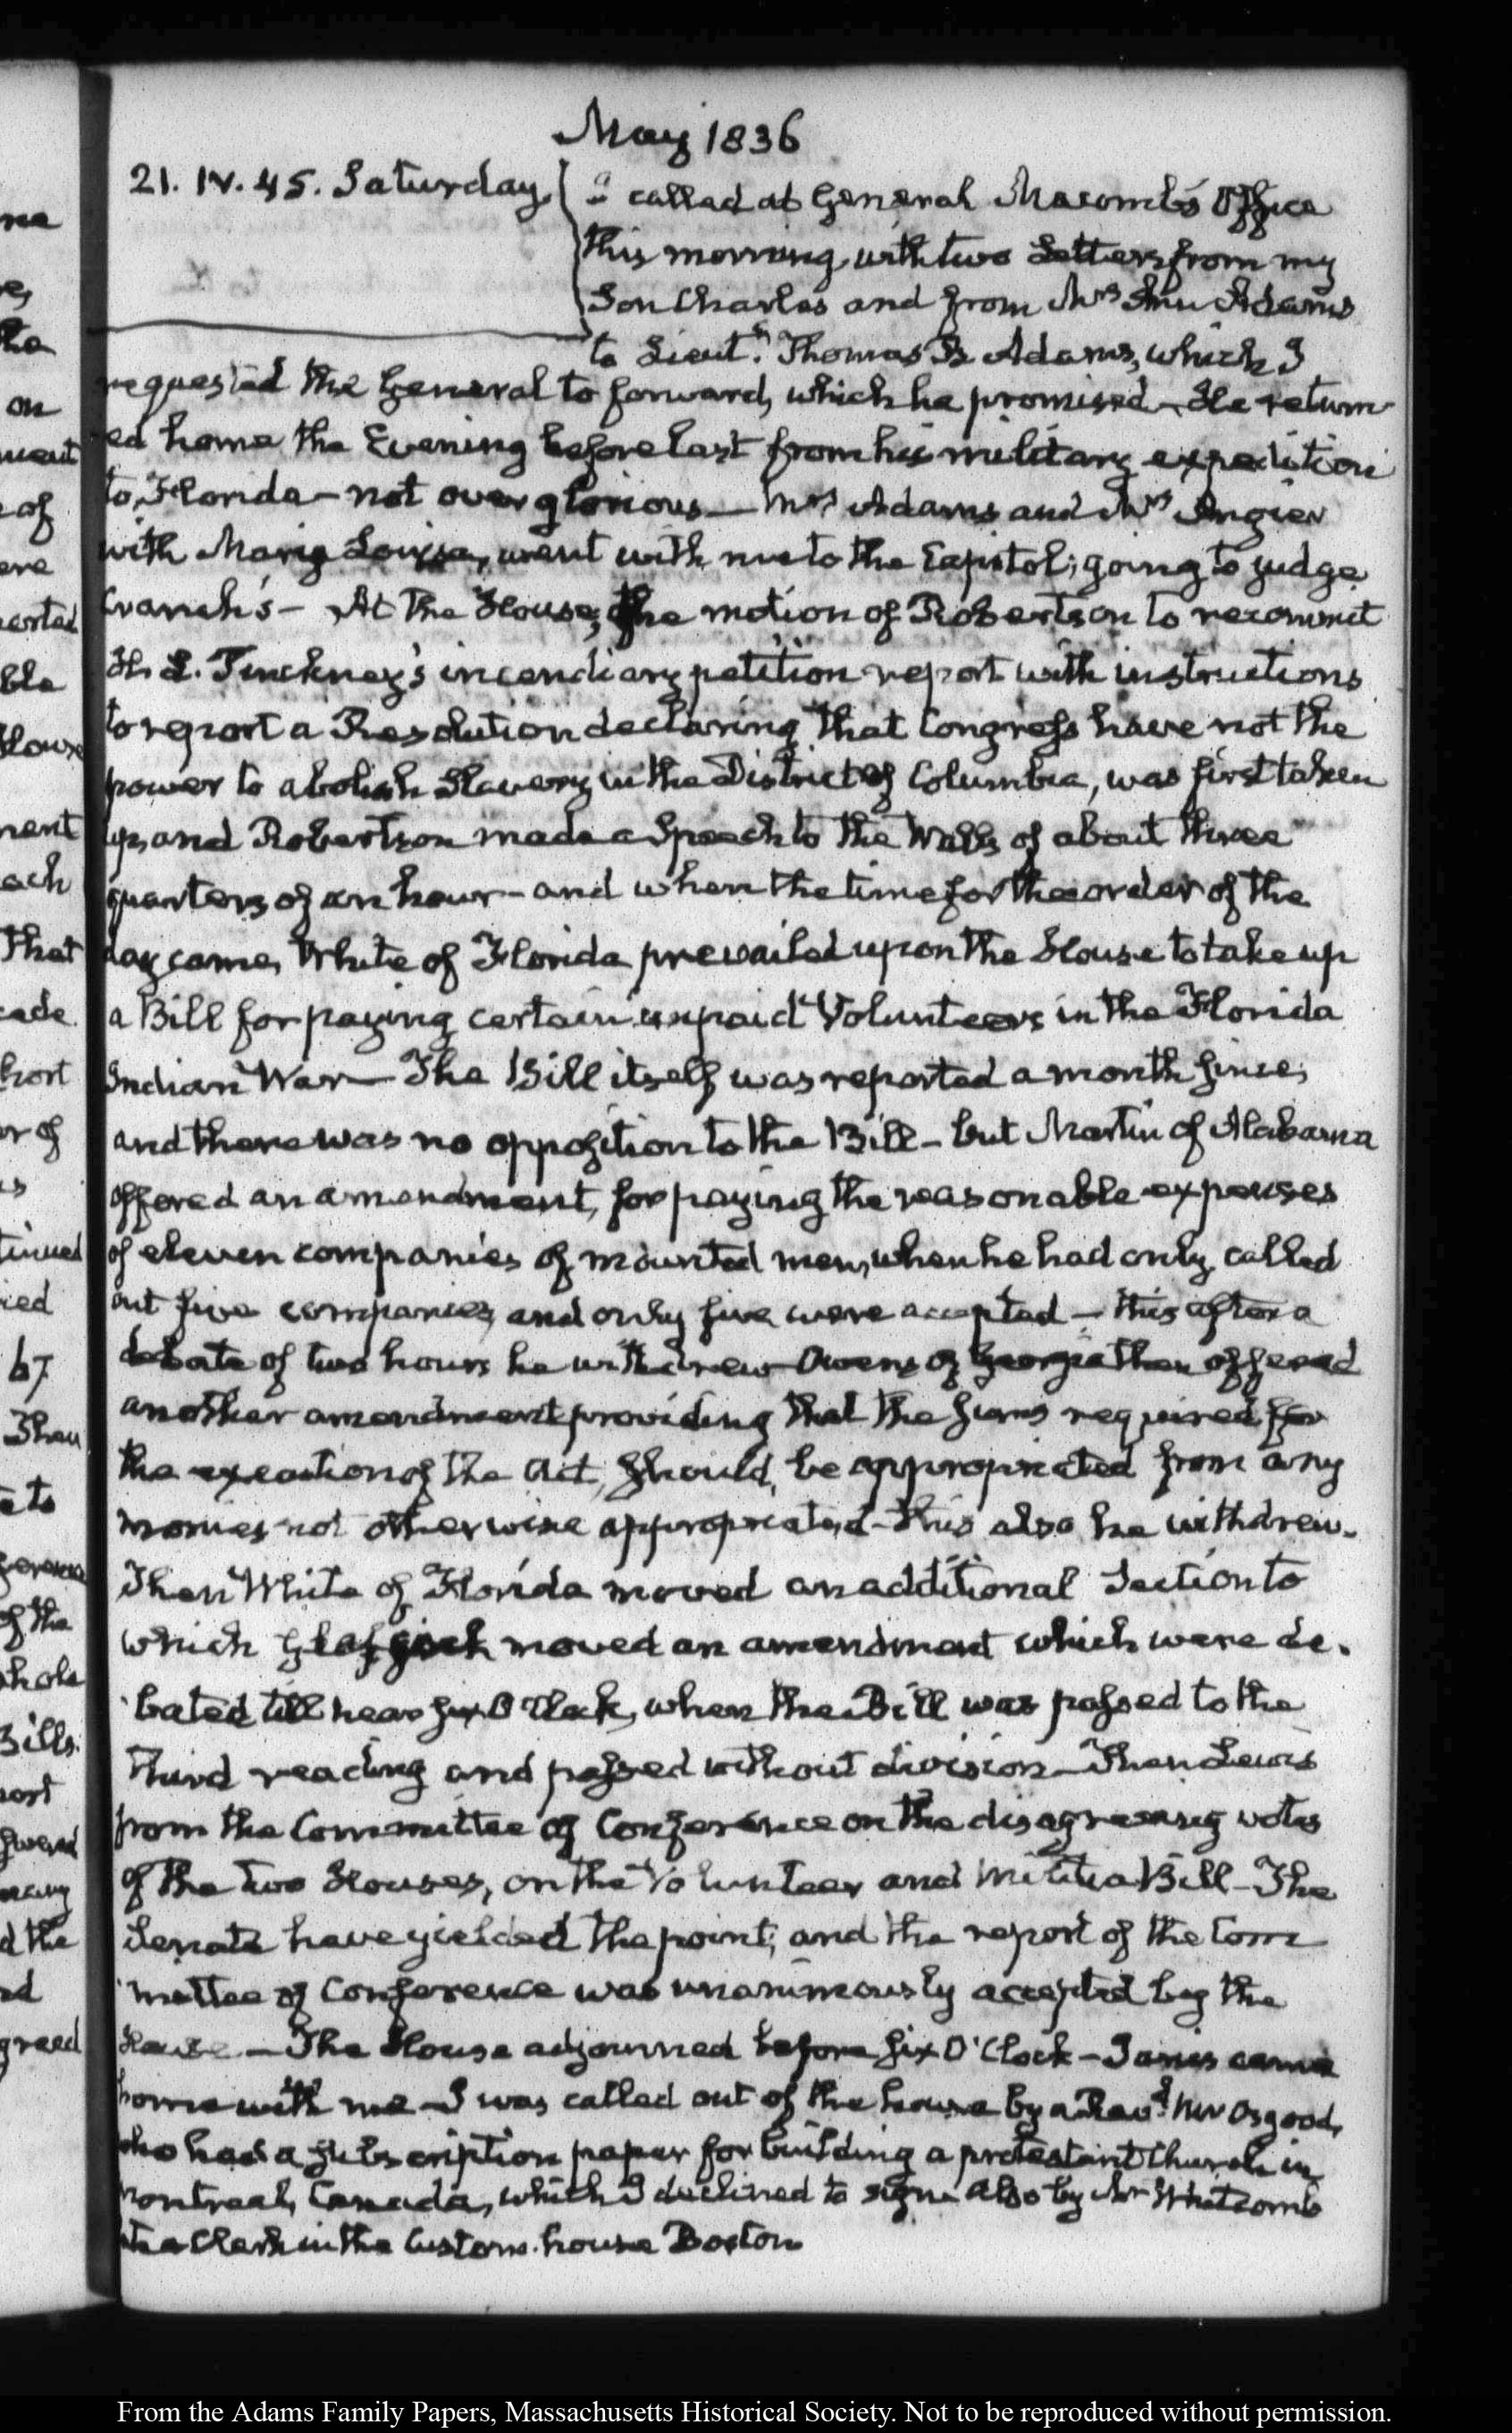 May 1836
21. IV. 45. Saturday.
I called at General Macomb's Office
this morning with two Letters from my
Son Charles and from Mrs Ann Adams
to Lieut. Thomas B Adams, which I
requested the General to forward, which he promised — He return-
ed home the Evening before last from his military expedition
to Florida — not over glorious — Mrs Adams and Mrs Angier
with Mary Louisa, went with me to the Capitol; going to judge
Cranch's — At the House, the motion of Robertson to recommit
H. L. Pinckney's incendiary petition report with instructions
to report a Resolution declaring that Congress have not the
power to abolish Slavery in the District of Columbia, was first taken
up, and Robertson made a Speech to the Walls of about three
quarters of an hour — and when the time for the order of the
day came, White of Florida prevailed upon the House to take up
a Bill for paying certain unpaid Volunteers in the Florida
Indian War — The Bill itself was reported a month since,
and there was no opposition to the Bill — but Martin of Alabama
offered an amendment, for paying the reasonable expenses
of eleven companies of mounted men, when he had only called
out five companies, and only five were accepted — this after a
debate of two hours he withdrew — Owens of Georgia then offered
another amendment providing that the sums required for
the execution of the Act, should, be appropriated from any
monies not otherwise appropriated — this also he withdrew.
Then White of Florida moved an additional Section to
which Glascock moved an amendment which were de-
bated till near six O'Clock, when the Bill was passed to the
third reading and passed without division — Then Lewis
from the Committee of Conference on the disagreeing votes
of the two Houses, on the Volunteer and Militia Bill — The
Senate have yielded the point, and the report of the Com
mittee of Conference was unanimously accepted by the
House. — The House adjourned before six O'Clock — Janes came
home with me — I was called out of the house by a Revd Mr Osgood,
who had a subscription paper for building a protestant Church in
Montreal, Canada, which I declined to sign also by Mr Whitcomb
the Clerk in the Custom-house Boston
me
on
ment
of
ere
ble
House
nent
ach
that
hort
or of
is
tinued
ied
67
Then
of the
Bills.
ort
d the
greed
From the Adams Family Papers, Massachusetts Historical Society. Not to be reproduced without permission.